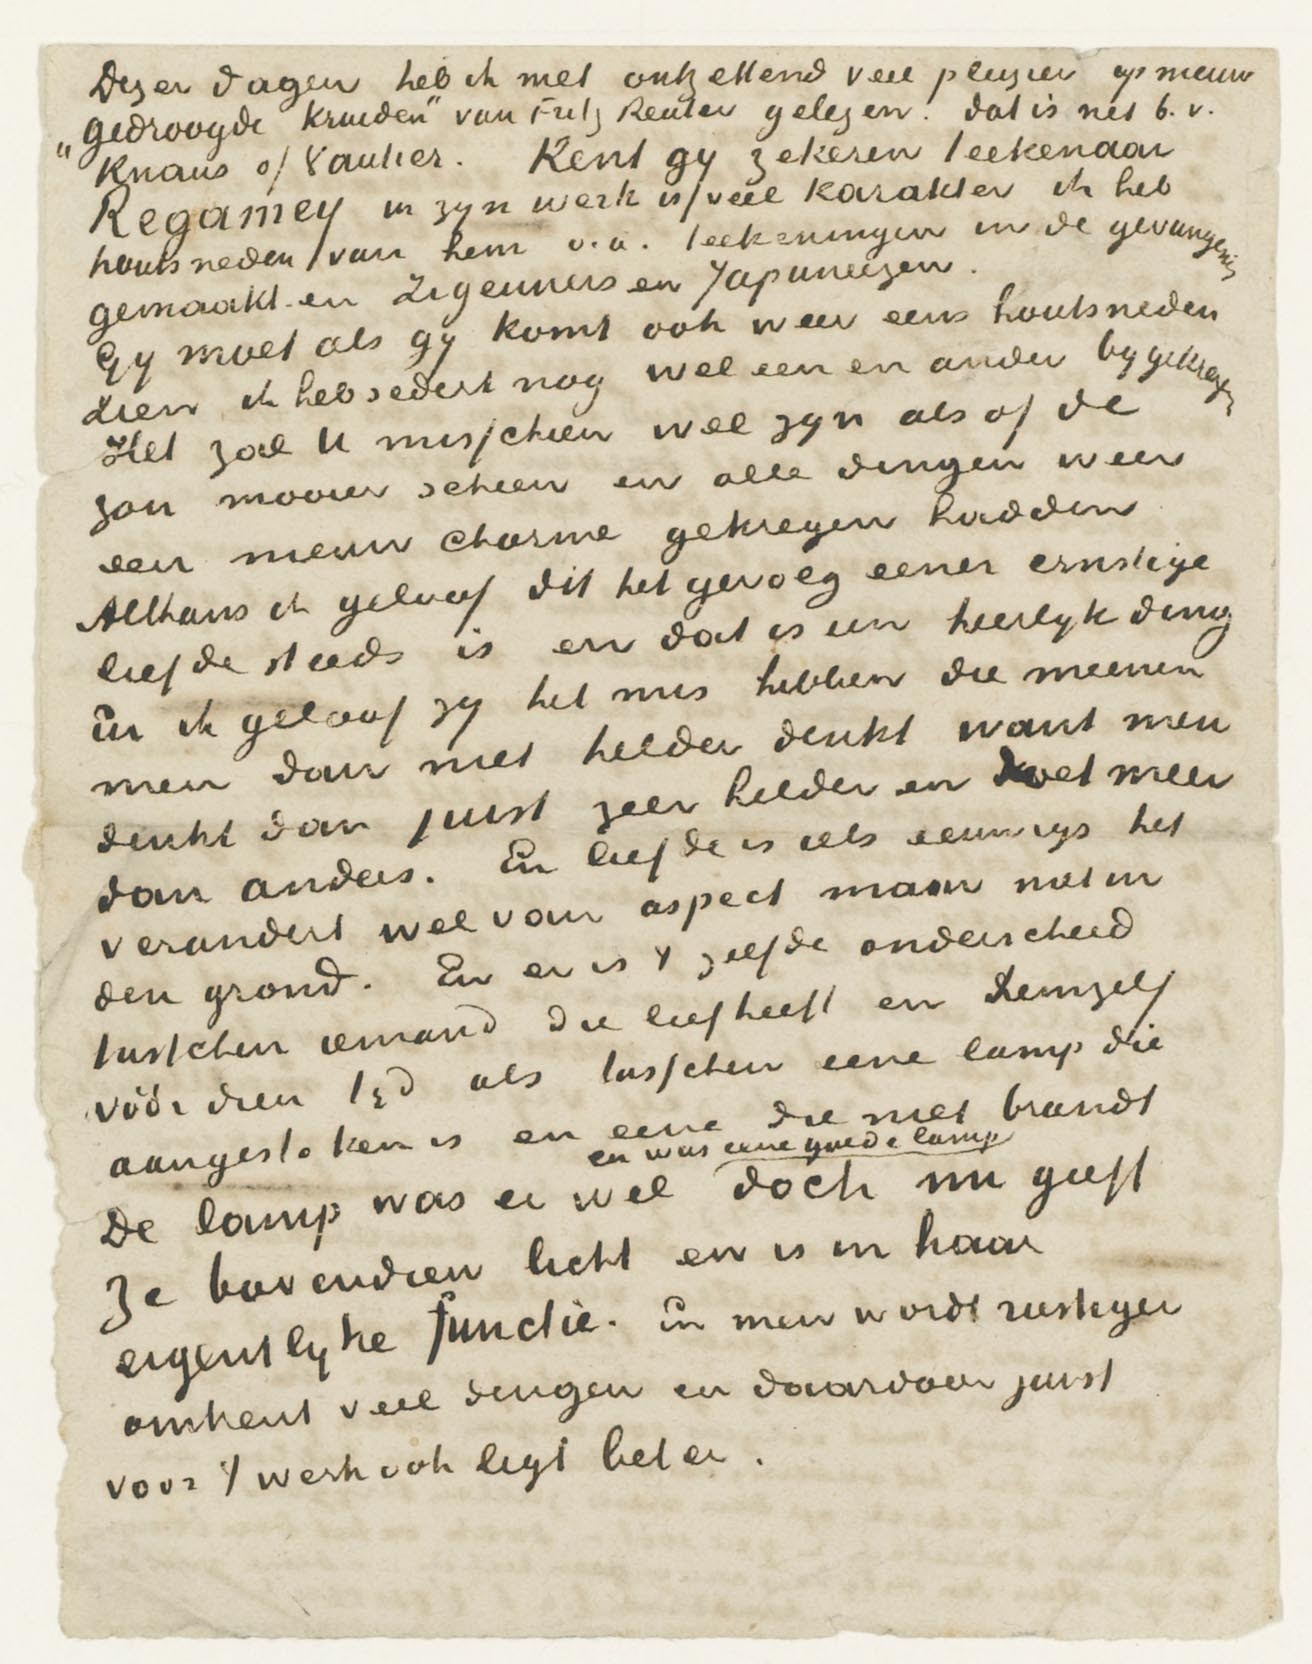 Dezer dagen heb ik met ontzettend veel pleizier op nieuw
„gedroogde kruiden" van Fritz Reuter gelezen. dat is net b.v.
Knaus of Vautier. Kent gy zekeren teekenaar
Regamey in zyn werk is veel karakter ik heb
houtsneden van hem o.a. teekeningen in de gevangenis
gemaakt en Zigeuners en Japaneezen.
Gy moet als gy komt ook weer eens houtsneden
zien ik heb sedert nog wel een en ander bygekregen
Het zal U misschien wel zyn als of de
zon mooier scheen en alle dingen weer
een nieuw charme gekregen hadden
Althans ik geloof dit het gevolg eener ernstige
liefde steeds is en dat is een heerlyk ding
En ik geloof zy het mis hebben die meenen
men dan niet helder denkt want men
denkt dan juist zeer helder en doet meer
dan anders. En liefde is iets eeuwigs het
verandert wel van aspect maar niet in
den grond. En er is 't zelfde onderscheid
tusschen iemand die liefheeft en denzelf
vóór dien tyd als tusschen eene lamp die
aangestoken is en eene die niet brandt
en was eene goede lamp
De lamp was er wel doch nu geeft
Ze bovendien licht en is in haar
eigentlyke functie. En men wordt rustiger
omtrent veel dingen en daardoor juist
voor 't werk ook ligt beter.